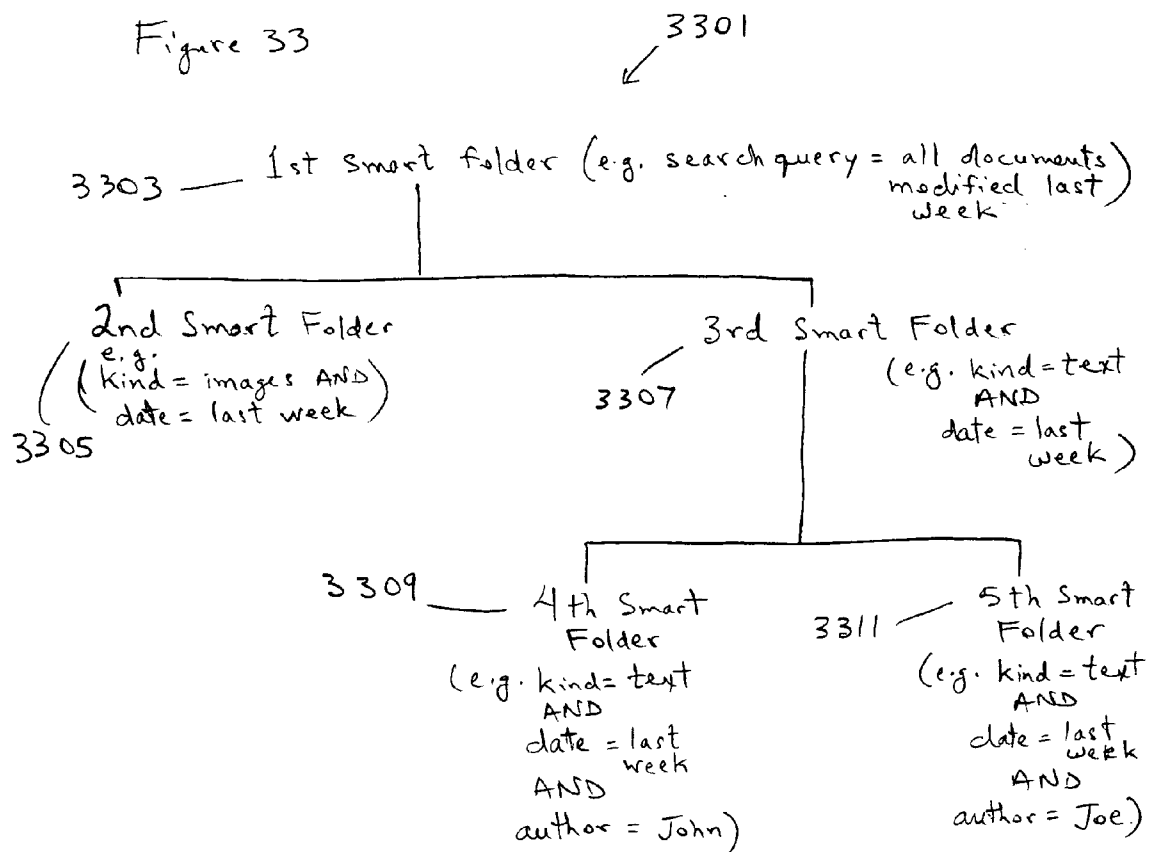 Figure 33
3301
3303
1st Smart folder (e.g. search query = all documents
modified last
week)
2nd Smart Folder
e.g.
(kind = images AND
date = last week)
3305
3rd Smart Folder
3307
(e.g. kind = text
AND
date = last
week)
3309
4th Smart
Folder
(e.g. kind = text
AND
date = last
week
AND
author = John)
3311
5th Smart
Folder
(e.g. kind = text
AND
date = last
week
AND
author = Joe)